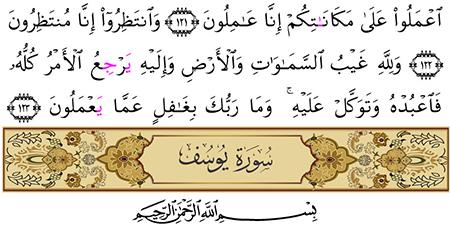 ٱعْمَلُوا۟ عَلَىٰ مَكَانَتِكُمْ إِنَّا عَٰمِلُونَ ١٢١ وَٱنتَظِرُوٓا۟ إِنَّا مُنتَظِرُونَ
١٢٢ وَلِلَّهِ غَيْبُ ٱلسَّمَٰوَٰتِ وَٱلْأَرْضِ وَإِلَيْهِ يَرْجِعُ ٱلْأَمْرُ كُلُّهُۥ
فَٱعْبُدْهُ وَتَوَكَّلْ عَلَيْهِ ۚ وَمَا رَبُّكَ بِغَٰفِلٍ عَمَّا يَعْمَلُونَ ١٢٣
سُورَةُ يُوسُفَ
بِسْمِ ٱللَّهِ ٱلرَّحْمَٰنِ ٱلرَّحِيمِ